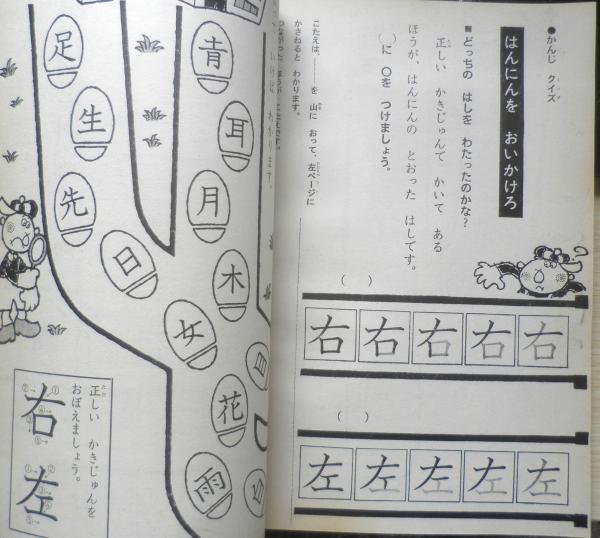 ●かんじ クイズ
はんにんを おいかけろ
■どっちの はしを わたったのかな?
正しい かきじゅんで かいて ある
ほうが、はんにんの とおった はしです。
( )に ○を つけましょう。
こたえは、……を 山に おって、左ページに
かさねると わかります。
( )
右 右 右 右 右
( )
左 左 左 左 左
青
耳
月
木
女
花
雨
足
生
先
日
正しい かきじゅんを
おぼえましょう。
右
左